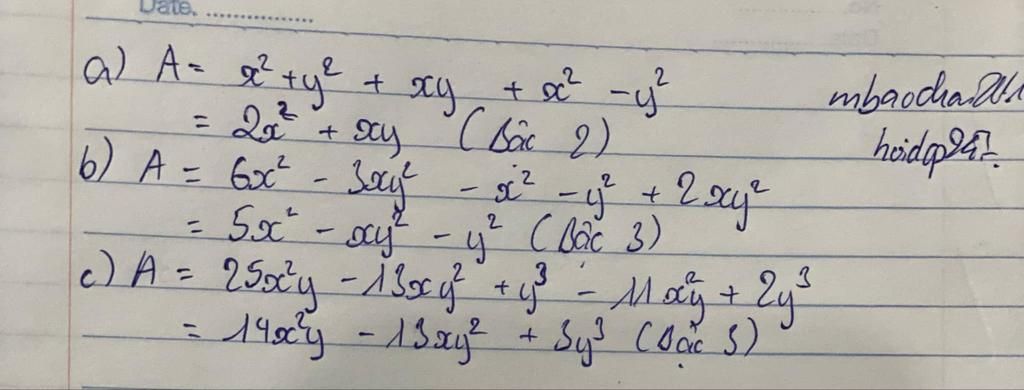 Date.
a) A = x² + y² + xy + x² - y²
= 2x² + xy (Bậc 2)
b) A = 6x² - 3xy² - x² - y² + 2xy²
= 5x² - xy² - y² (Bậc 3)
c) A = 25x²y - 13xy² + y³ - 11x²y + 2y³
= 14x²y - 13xy² + 3y³ (Bậc 3)